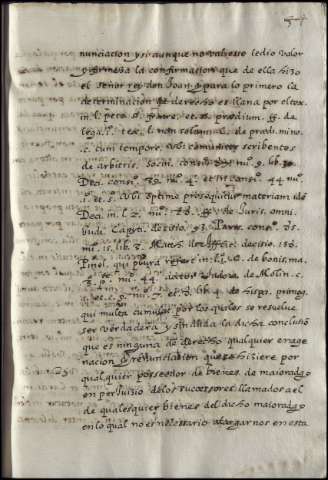 nunciacion y si aunque no valiesse le dio valor
y firmeza la confirmacion que de ella hizo
el señor rey don Joan para lo primero la
determinacion de derecho es llana por el tex.
in l. peto. § fratre. et § prædium. ff. de
lega. l. tex. l. non solum de prædi. mino.
c. cum tempore. ubi scribentes
de arbitris. Socin. consi. nu. 9. lib.
Dec. consi. 39. nu. 4. et consi. 44. nu.
et. 5. ubi optime prosequitur materiam
Dec. in l. 2. nu. 28. ff. de Juris. omni.
iudi. decisio. 93. Paris. consi.
nu. 15. lib. 2. Math. de afflict. decisio.
Pinel. qui plura refert in l. de bonis. ma.
3. p. nu. 44. Molin.
et c. 9. nu. 7. et lib. 4. de hispa. primog.
qui multa cumulat por los quales se resuelve
ser verdadera y la dicha conclusio
que es ninguna de derecho qualquier enage
nacion o renunciacion que se hiziere por
qualquier posseedor de bienes de maioradgo
en perjuizio de los successores llamados a el
de qualesquier bienes del dicho maioradgo
en lo qual no es necessario alargarnos en esta